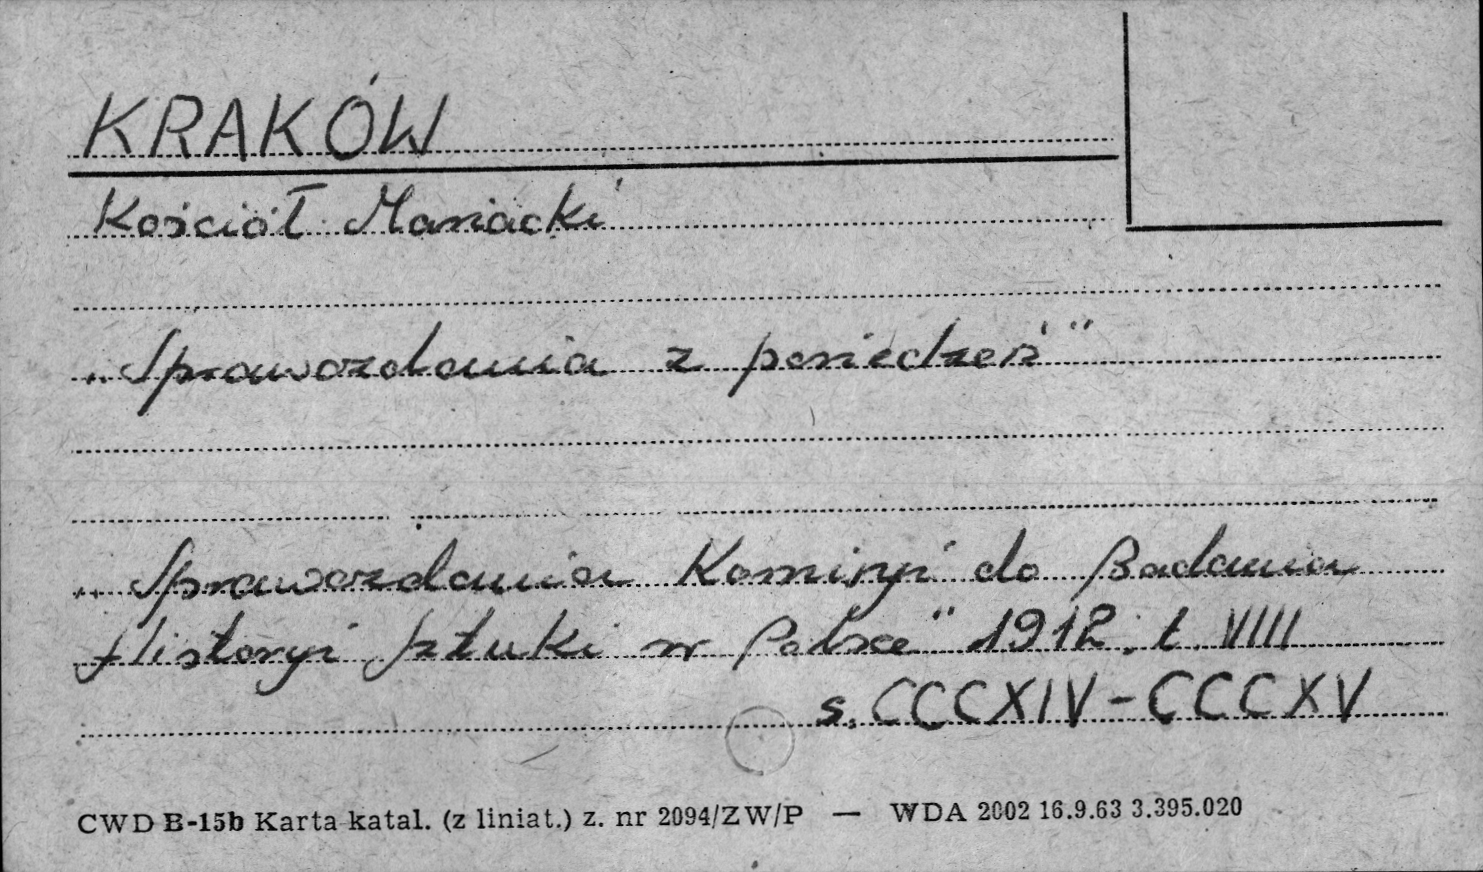 KRAKÓW
Kościół Mariacki
„Sprawozdania z posiedzeń"
„Sprawozdania Komisyi do Badania
Historyi Sztuki w Polsce" 1912. t. VIII
s. CCCXIV-CCCXV
CWD B-15b Karta katal. (z liniat.) z. nr 2094/ZW/P — WDA 2002 16.9.63 3.395.020